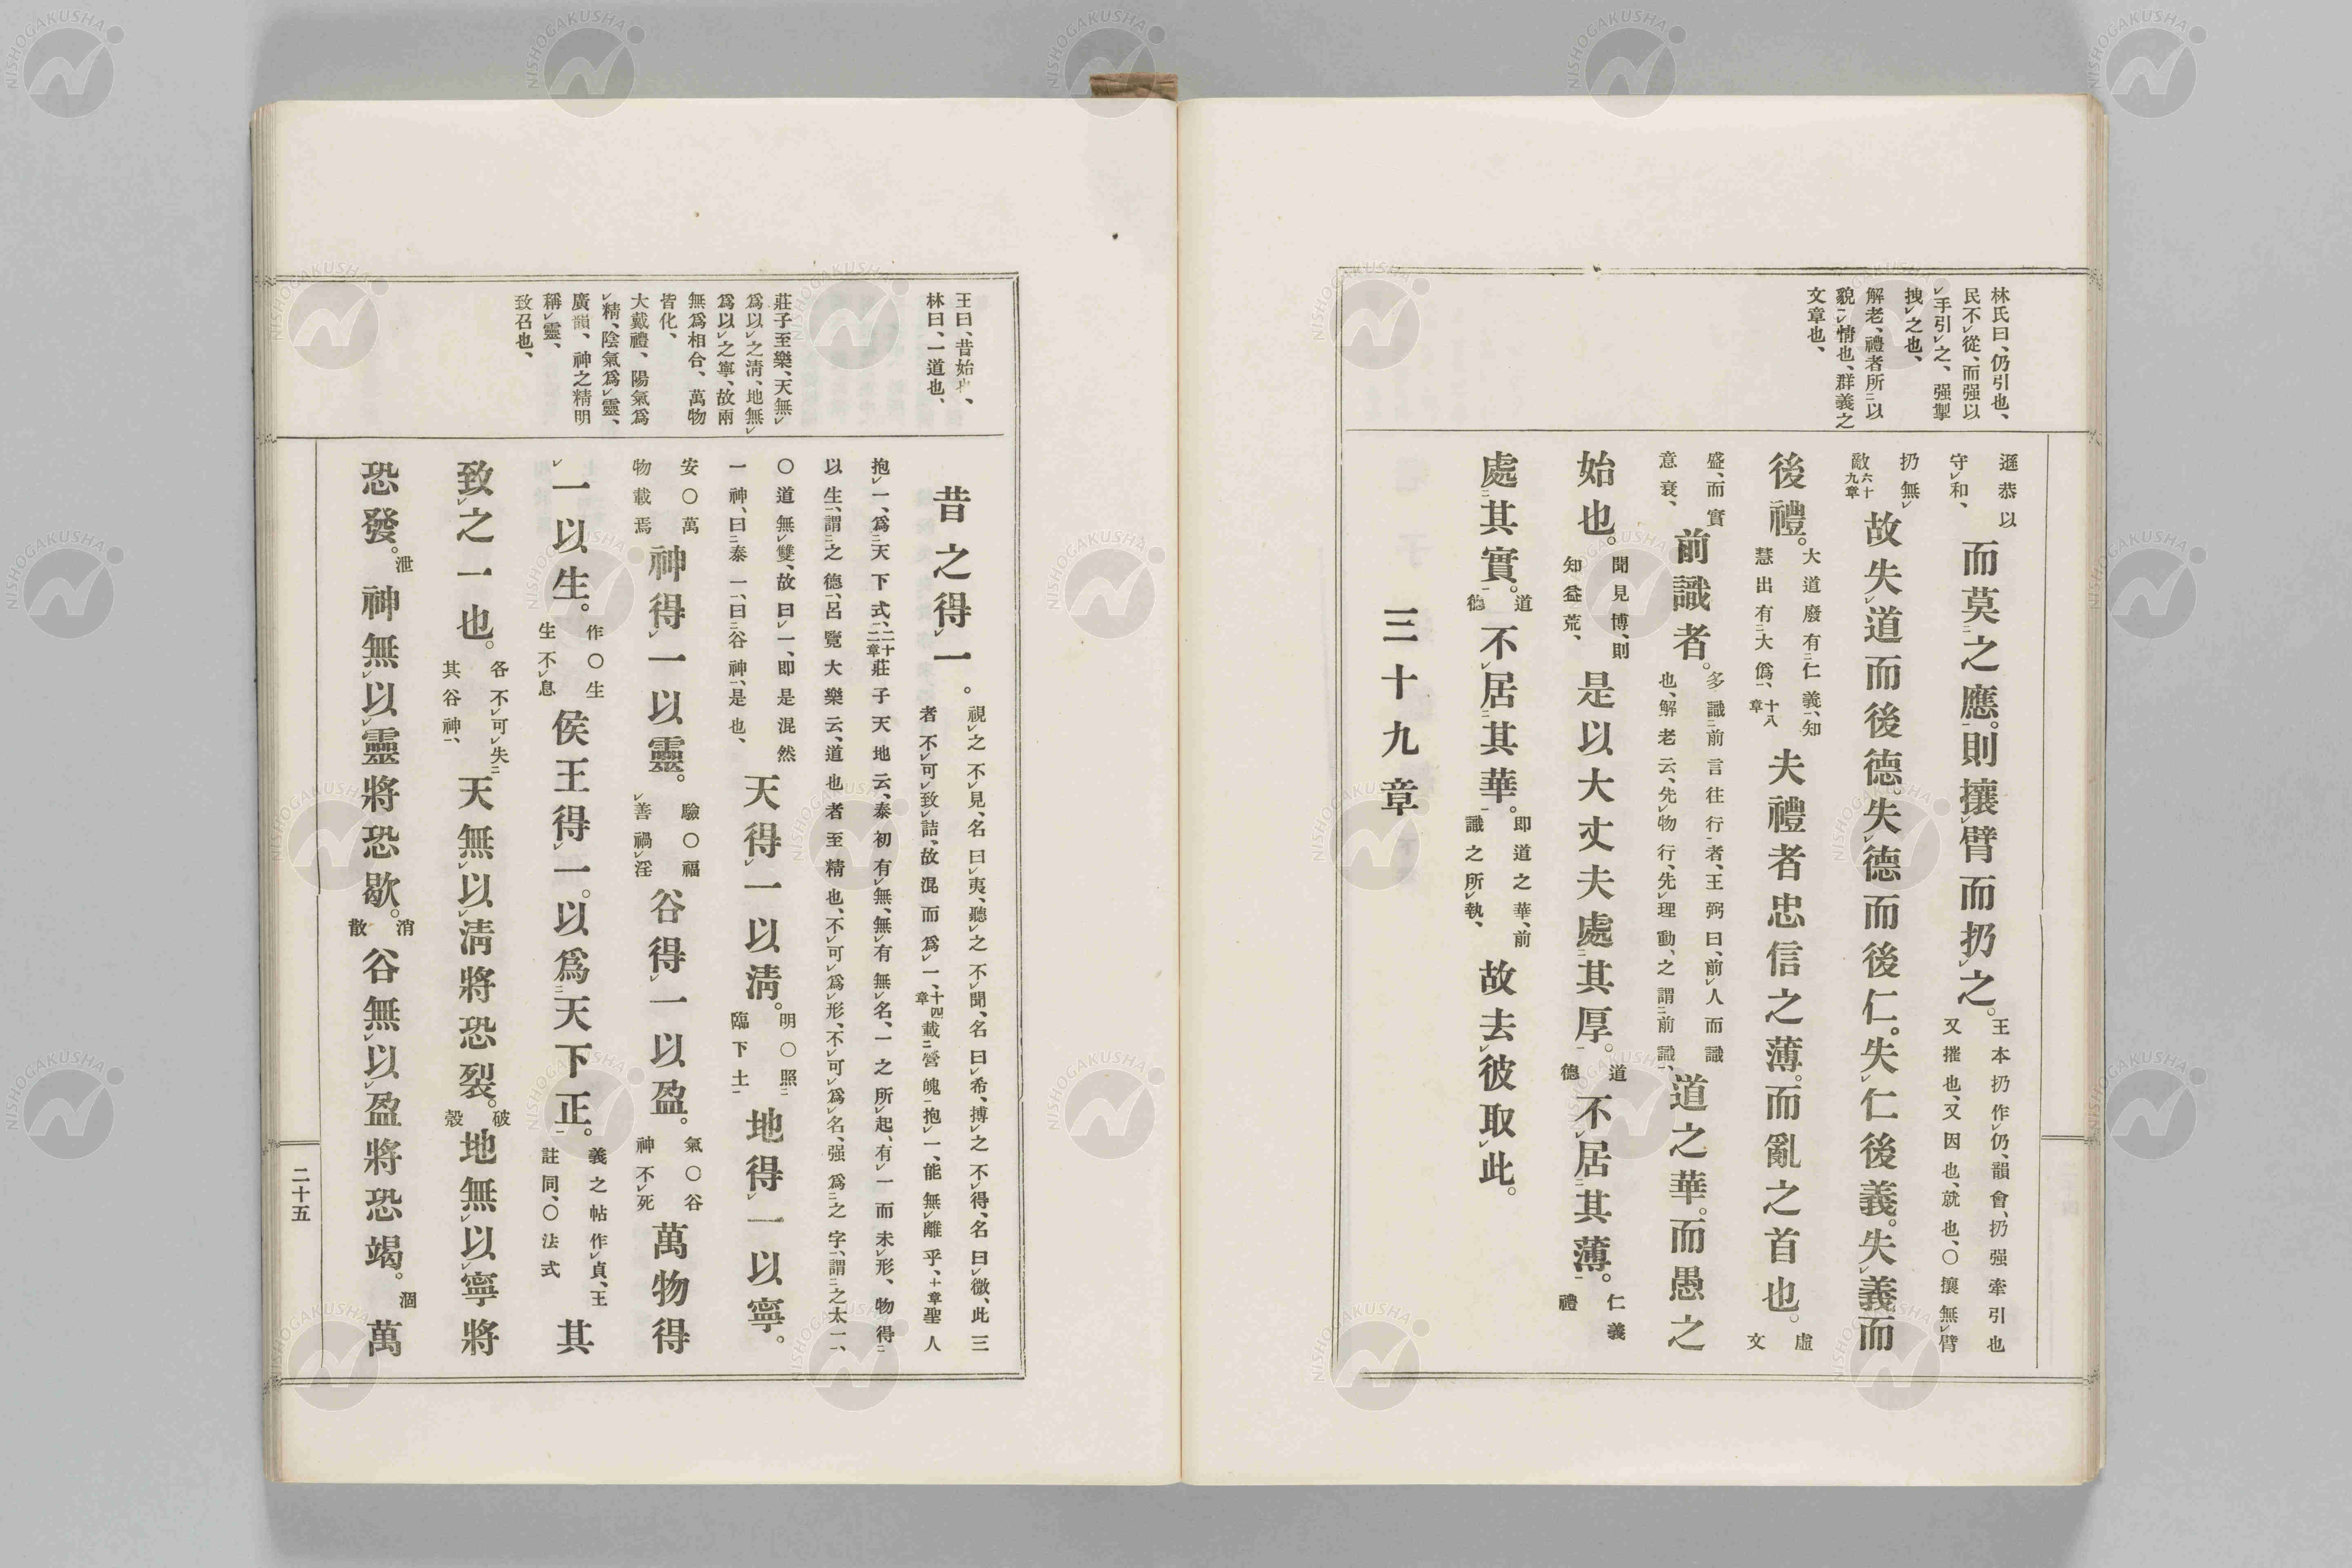 林氏曰、仍引也、
民不從、而强以
手引之、强掣
拽之也、
解老、禮者所以
貌情也、群義之
文章也、
遜恭以守和、而莫之應。則攘臂而扔之。王本扔作仍、韻會、扔强牽引也又摧也、又因也、就也、〇攘無臂
扔無敵六十九章故失道而後德。失德而後仁。失仁後義。失義而
後禮。大道廢有仁義、知慧出有大僞、十八章夫禮者忠信之薄。而亂之首也。虛文
盛、而實意衰、前識者。多識前言往行者、王弼曰、前人而識也、解老云、先物行、先理動、之謂前識、道之華。而愚之
始也。聞見博、則知益荒、是以大丈夫處其厚。道德不居其薄。仁義禮
處其實。道德不居其華。即道之華、前識之所執、故去彼取此。
三十九章
王曰、昔始也、
林曰、一道也、
莊子至樂、天無
爲以之淸、地無
爲以之寧、故兩
無爲相合、萬物
皆化、
大戴禮、陽氣爲
精、陰氣爲靈、
廣韻、神之精明
稱靈、
致召也、
昔之得一。視之不見、名曰夷、聽之不聞、名曰希、搏之不得、名曰微、此三者不可致詰、故混而爲一、十四章載營魄抱一、能無離乎、十章聖人
抱一、爲天下式、二十二章莊子天地云、泰初有無、無有無名、一之所起、有一而未形、物得
以生、謂之德、呂覽大樂云、道也者至精也、不可爲形、不可爲名、强爲之字、謂之太一、
〇道無雙、故曰一、即是混然一神、曰泰一、曰谷神、是也、天得一以淸。明〇照臨下土地得一以寧。
安〇萬物載焉神得一以靈。驗〇福善禍淫谷得一以盈。氣〇谷神不死萬物得
一以生。作〇生生不息侯王得一。以爲天下正。義之帖作貞、王註同、〇法式其
致之一也。各不可失其谷神、天無以淸將恐裂。破殼地無以寧將
恐發。泄神無以靈將恐歇。消散谷無以盈將恐竭。涸萬
二十五
NISHOGAKUSHA